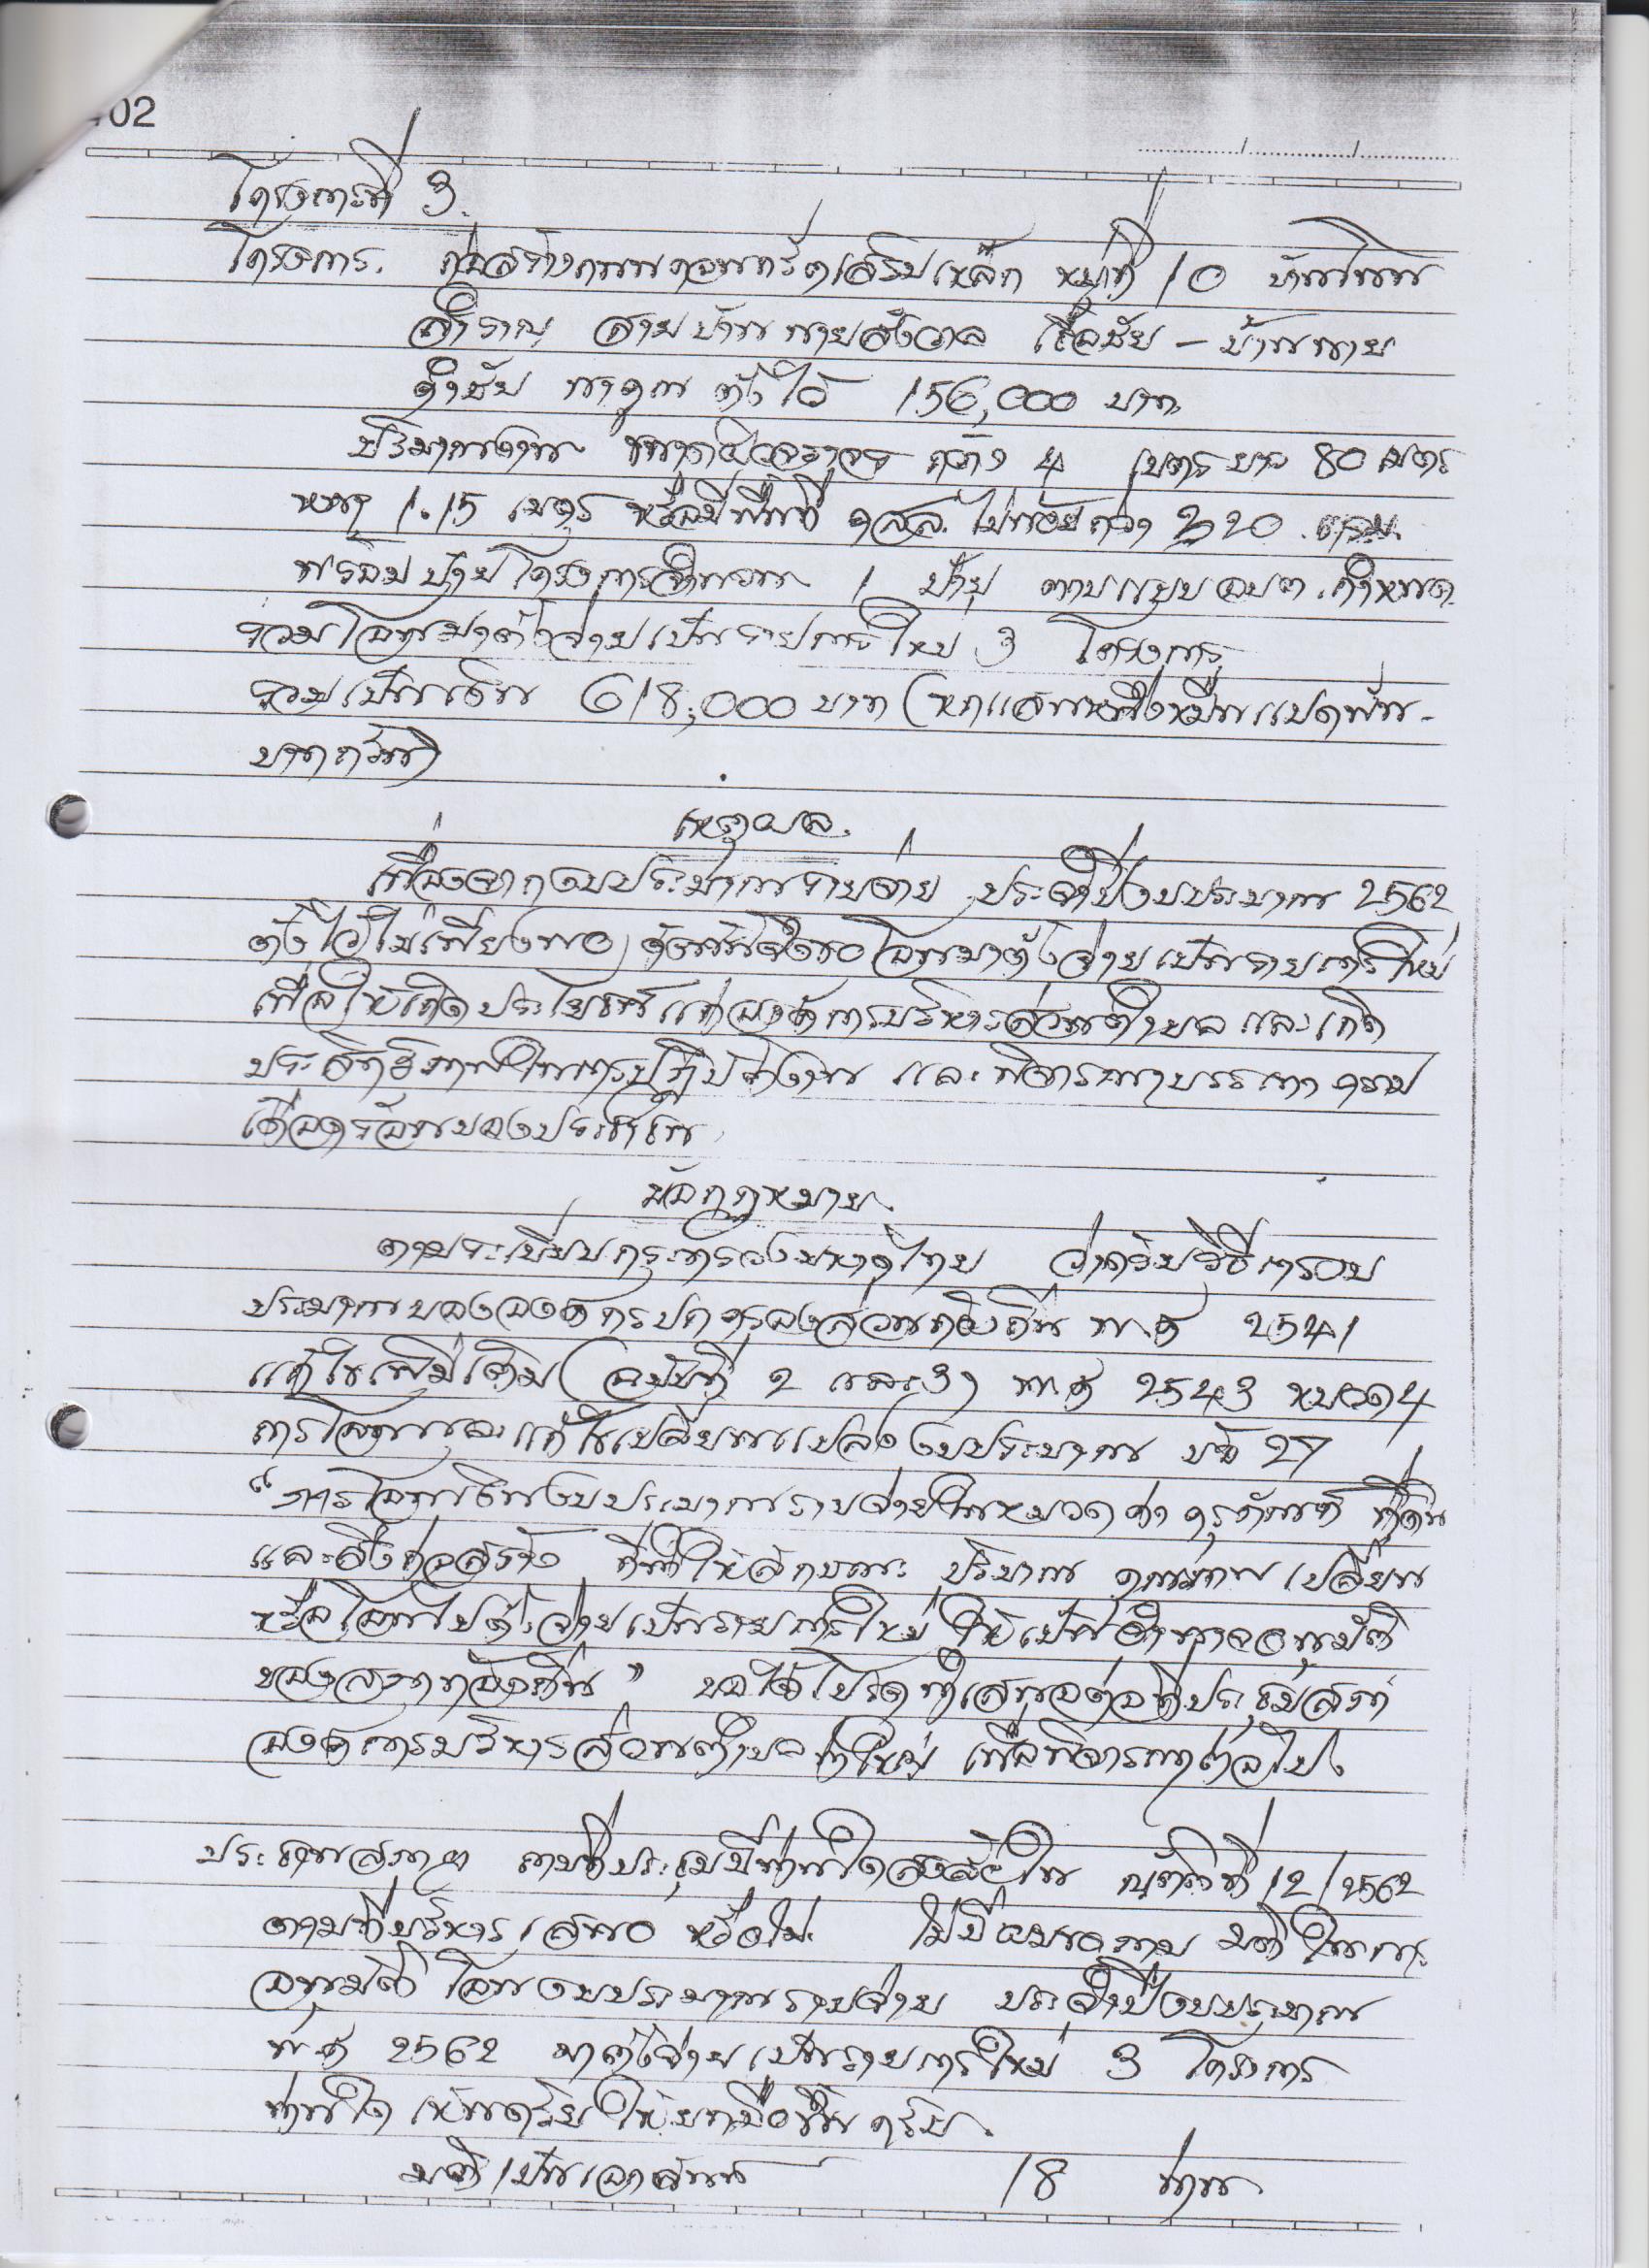 02
โครงการที่ 3.
โครงการ. ก่อสร้างถนนคอนกรีตเสริมเหล็ก หมู่ที่ 10 บ้านเนิน
สำราญ สายบ้านนายสังวาล เชื้อชัย - บ้านนาย
ธำชัย ตั้งไว้ 156,000 บาท
ปริมาณงาน ขนาดผิวจราจร กว้าง 4 เมตร ยาว 80 เมตร
หนา 1.15 เมตร หรือมีพื้นที่ คสล. ไม่น้อยกว่า 320 ตรม.
พร้อมป้ายโครงการจำนวน 1 ป้าย ตามแบบ อบต. กำหนด
รวมโอนมาตั้งจ่ายเป็นรายการใหม่ 3 โครงการ
รวมเป็นเงิน 618,000 บาท (หกแสนหนึ่งหมื่นแปดพัน-
บาทถ้วน)
เหตุผล.
เนื่องจากงบประมาณรายจ่าย ประจำปีงบประมาณ 2562
ตั้งไว้ไม่เพียงพอ ดังนั้นจึงขอโอนมาตั้งจ่ายเป็นรายการใหม่
เพื่อให้เกิดประโยชน์แก่องค์การบริหารส่วนตำบล และเกิด
ประสิทธิภาพในการปฏิบัติงาน และพิจารณาบรรเทา ความ
เดือดร้อนของประชาชน
ข้อกฎหมาย.
ตามระเบียบกระทรวงมหาดไทย ว่าด้วยวิธีการงบ
ประมาณขององค์กรปกครองส่วนท้องถิ่น พ.ศ 2541
แก้ไขเพิ่มเติม (ฉบับที่ 2 และ 3) พ.ศ 2543 หมวด 4
การโอนและแก้ไขเปลี่ยนแปลงงบประมาณ ข้อ 27
"การโอนเงินงบประมาณรายจ่ายในหมวดค่า ครุภัณฑ์ ที่ดิน
และสิ่งก่อสร้าง ที่ทำให้ลักษณะ ปริมาณ คุณภาพ เปลี่ยน
หรือโอนไปตั้งจ่ายเป็นรายการใหม่ ให้เป็นอำนาจอนุมัติ
ของสภาท้องถิ่น" ขอได้โปรดนำเสนอต่อที่ประชุมสภา
องค์การบริหารส่วนตำบล เพื่อพิจารณาต่อไป
ประธานสภาฯ ถามที่ประชุมมีท่านใดสงสัยใน ญัตติที่ 12/2562
ตามที่บริหารเสนอ หรือไม่ ไม่มีผมขอถาม มติในการ
อนุมัติ โอนงบประมาณรายจ่าย ประจำปีงบประมาณ
พ.ศ 2562 มาตั้งจ่ายเป็นรายการใหม่ 3 โครงการ
ท่านใด เห็นด้วยให้ยกมือขึ้น ครับ.
มติเป็นเอกฉันท์ 18 ท่าน